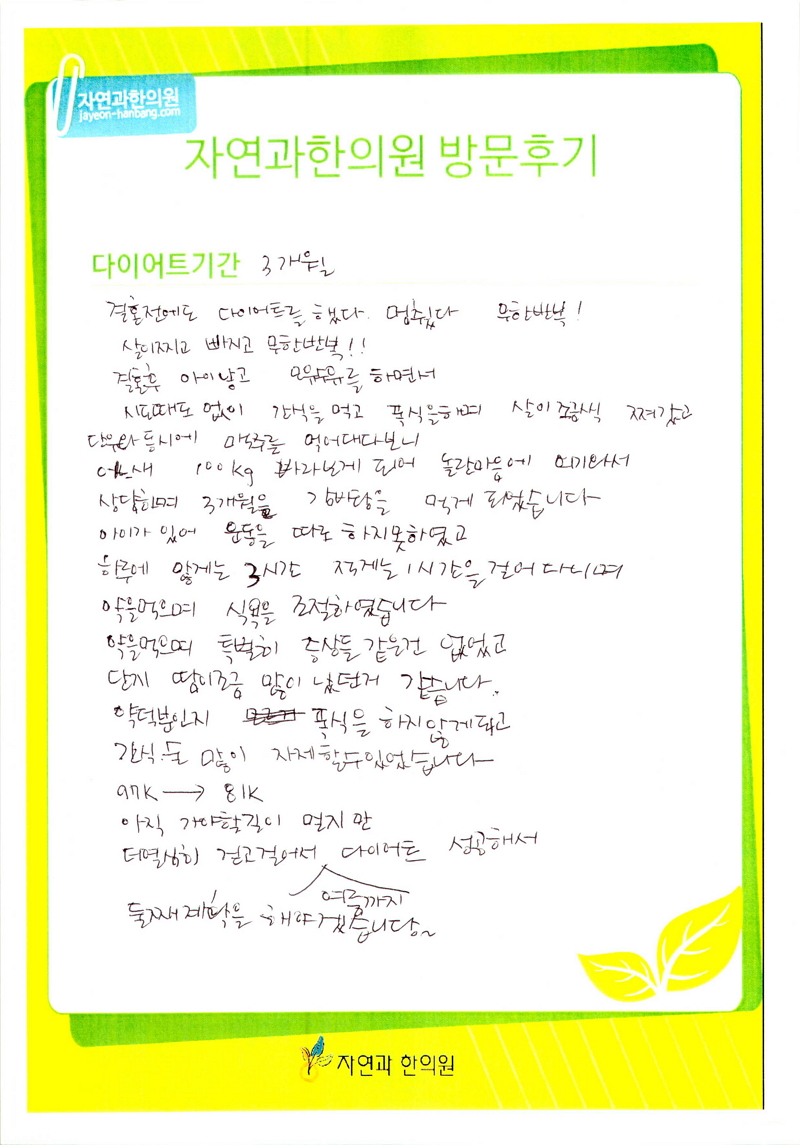 자연과한의원
jayeon-hanbang.com
자연과한의원 방문후기
다이어트기간 3개월
결혼전에도 다이어트를 했다. 멈췄다 무한반복!
살이찌고 빠지고 무한반복!!
결혼후 아이낳고 모유수유를 하면서
시도때도 없이 간식을 먹고 폭식을하며 살이 조금씩 쪄갔고
단유와 동시에 맥주를 먹어대다보니
어느새 100kg 바라보게 되어 놀란마음에 여기와서
상담하며 3개월을 감비탕을 먹게 되었습니다
아이가 있어 운동을 따로 하지못하였고
하루에 많게는 3시간 적게는 1시간을 걸어다니며
약을먹으며 식욕을 조절하였습니다
약을먹으며 특별히 증상들 같은건 없었고
단지 땀이조금 많이 났던거 같습니다.
약덕분인지 폭식을 하지않게되고
간식도 많이 자제할수있었습니다
97K → 81K
아직 가야할길이 멀지만
더열심히 걷고걸어서 다이어트 성공해서
여름까지
둘째계획을 해야겠습니다~
자연과 한의원